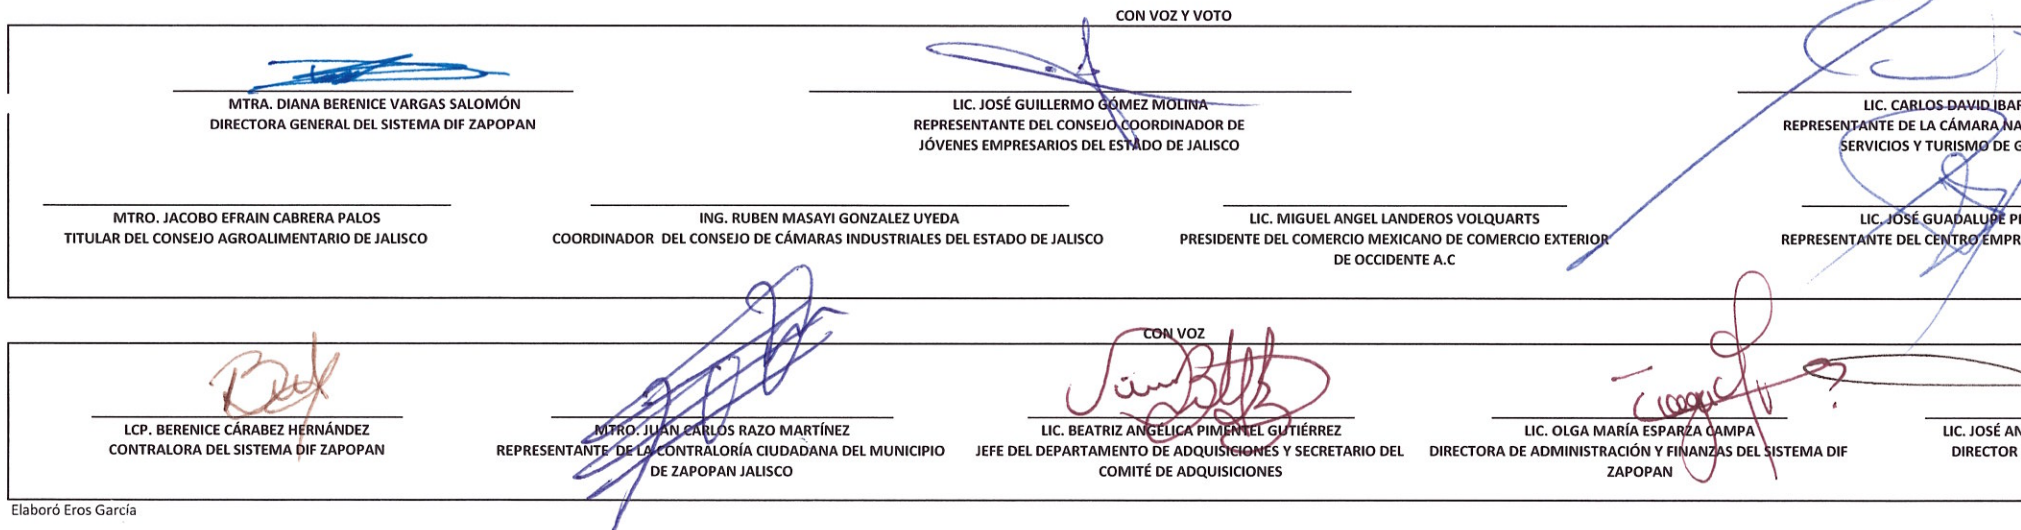 CON VOZ Y VOTO
MTRA. DIANA BERENICE VARGAS SALOMÓN
DIRECTORA GENERAL DEL SISTEMA DIF ZAPOPAN
LIC. JOSÉ GUILLERMO GÓMEZ MOLINA
REPRESENTANTE DEL CONSEJO COORDINADOR DE
JÓVENES EMPRESARIOS DEL ESTADO DE JALISCO
LIC. CARLOS DAVID
REPRESENTANTE DE LA CÁMARA
SERVICIOS Y TURISMO DE
MTRO. JACOBO EFRAIN CABRERA PALOS
TITULAR DEL CONSEJO AGROALIMENTARIO DE JALISCO
ING. RUBEN MASAYI GONZALEZ UYEDA
COORDINADOR DEL CONSEJO DE CÁMARAS INDUSTRIALES DEL ESTADO DE JALISCO
LIC. MIGUEL ANGEL LANDEROS VOLQUARTS
PRESIDENTE DEL COMERCIO MEXICANO DE COMERCIO EXTERIOR
DE OCCIDENTE A.C
LIC. JOSÉ GUADALUPE
REPRESENTANTE DEL CENTRO
CON VOZ
LCP. BERENICE CÁRABEZ HERNÁNDEZ
CONTRALORA DEL SISTEMA DIF ZAPOPAN
MTRO. JUAN CARLOS RAZO MARTÍNEZ
REPRESENTANTE DE LA CONTRALORÍA CIUDADANA DEL MUNICIPIO
DE ZAPOPAN JALISCO
LIC. BEATRIZ ANGÉLICA PIMENTEL GUTIÉRREZ
JEFE DEL DEPARTAMENTO DE ADQUISICIONES Y SECRETARIO DEL
COMITÉ DE ADQUISICIONES
LIC. OLGA MARÍA ESPARZA CAMPA
DIRECTORA DE ADMINISTRACIÓN Y FINANZAS DEL SISTEMA DIF
ZAPOPAN
LIC. JOSÉ
DIRECTOR
Elaboró Eros García